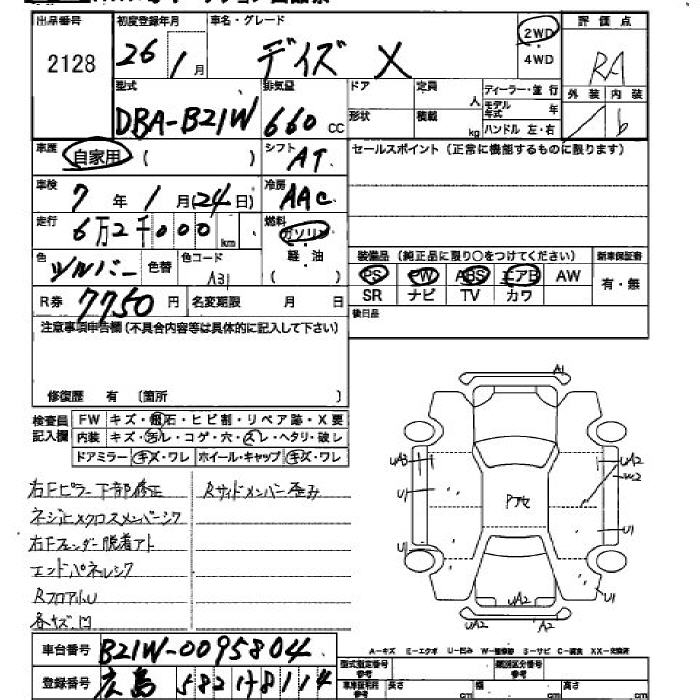 出品番号 初度登録年月 車名・グレード 2WD 評価点
2128 26年 1月 デイズ X 4WD RA
外装 内装
/ b
型式 排気量 ドア 定員 人 ディーラー・並行
DBA-B21W 660cc 形状 積載 kg モデル年式 年
ハンドル 左・右
車歴 自家用 ( ) シフト AT セールスポイント (正常に機能するものに限ります)
車検 7年 1月 (24日) 冷房 AAC
走行 6万2千000km 燃料 ガソリン
軽油
色 シルバー 色替 色コード A31 装備品 (純正品に限り○をつけてください) 新車保証書
PS PW ABS エアB AW 有・無
R券 7750円 名変期限 月 日 SR ナビ TV カワ
注意事項申告欄 (不具合内容等は具体的に記入して下さい) 後日品
修復歴 有 〔箇所 〕
検査員記入欄 FW キズ・飛石・ヒビ割・リペア跡・X要
内装 キズ・汚レ・コゲ・穴・スレ・ヘタリ・破レ
ドアミラー キズ・ワレ ホイール・キャップ キズ・ワレ
右Fピラー下部修正 Rサイドメンバー歪み
ネジ止メクロスメンバーシワ
右Fフェンダー脱着アト
エンドパネルシワ
RフロアU
各キズ、凹
A1
UA3 UA2
W2
U1 Pアセ
U1
U1 U1
UA2
UA2 A2
A-キズ E-エクボ U-凹み W-補修跡 S-サビ C-腐食 XX-交換済
車台番号 B21W-0095804 型式指定番号 参考 類別区分番号 参考
登録番号 広島 582 け 8114 車庫証明用 参考 長さ cm 幅 cm 高さ cm